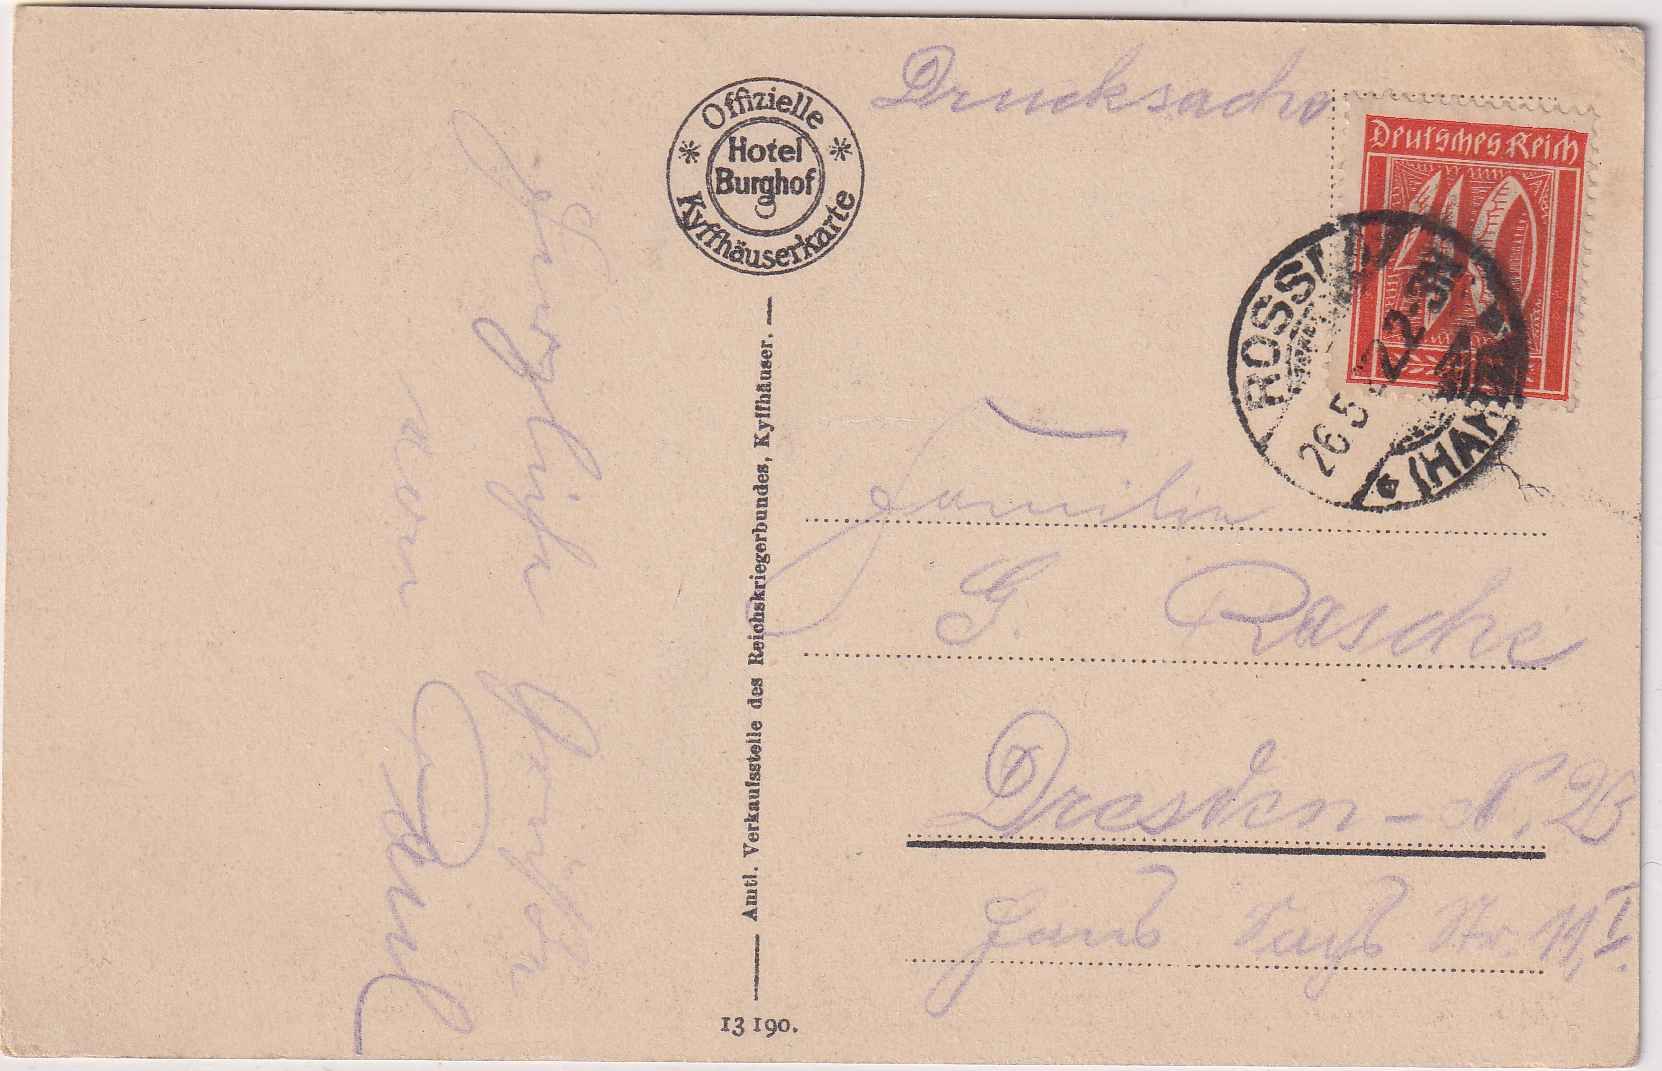 Drucksache
Offizielle
Hotel
Burghof
Kyffhäuserkarte
Deutsches Reich
40
26.5.22
(HARZ)
Herzliche Grüße
von
Paul
Amtl. Verkaufsstelle des Reichskriegerbundes, Kyffhäuser.
Familie
G. Rasche
Dresden - N. 23
Hans Sachs Str. 11, I.
13 190.